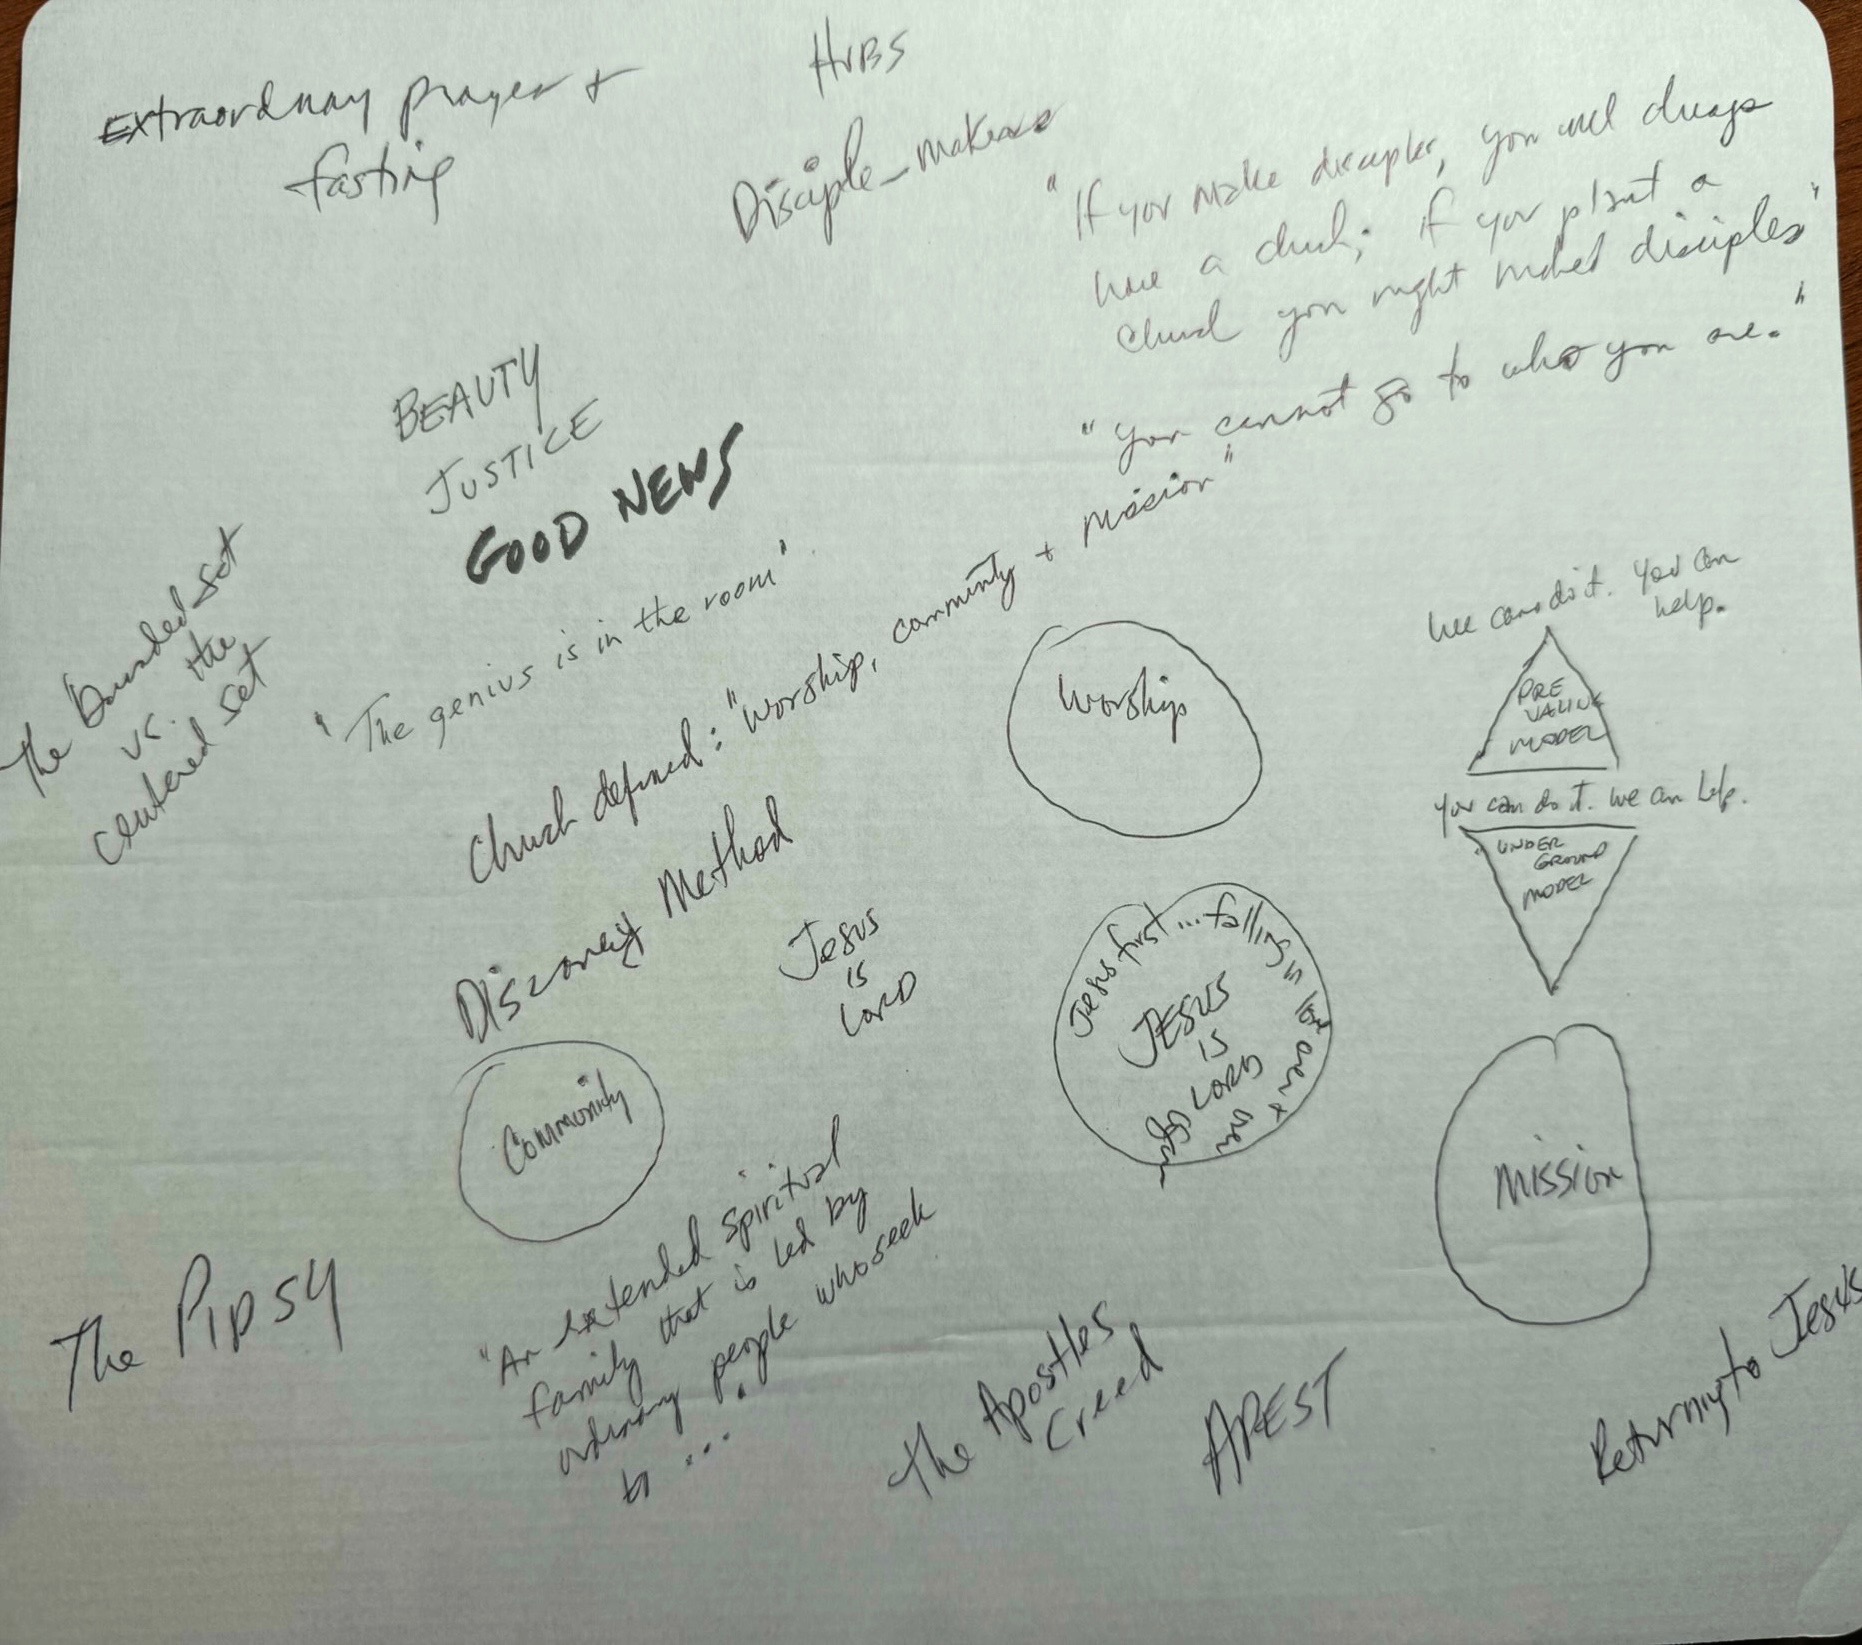 Extraordinary prayer +
fasting
HUBS
Disciple-makers
"If you make disciples, you will always
have a church; if you plant a
church you might make disciples"
"You cannot go to who you are."
BEAUTY
JUSTICE
GOOD NEWS
"The genius is in the room"
The bounded set
vs. the
centered set
Church defined: "Worship, community + mission"
Discovery Method
Worship
We can do it. You can
help.
PRE
VAILING
MODEL
You can do it. We can help.
"UNDER
GROUND
MODEL
Jesus
is
LORD
Jesus first... falling in love over + over again
JESUS
IS
LORD
Community
Mission
"An extended spiritual
family that is led by
ordinary people who seek
to ...
The Pipsy
The Apostles
Creed
APEST
Returning to Jesus